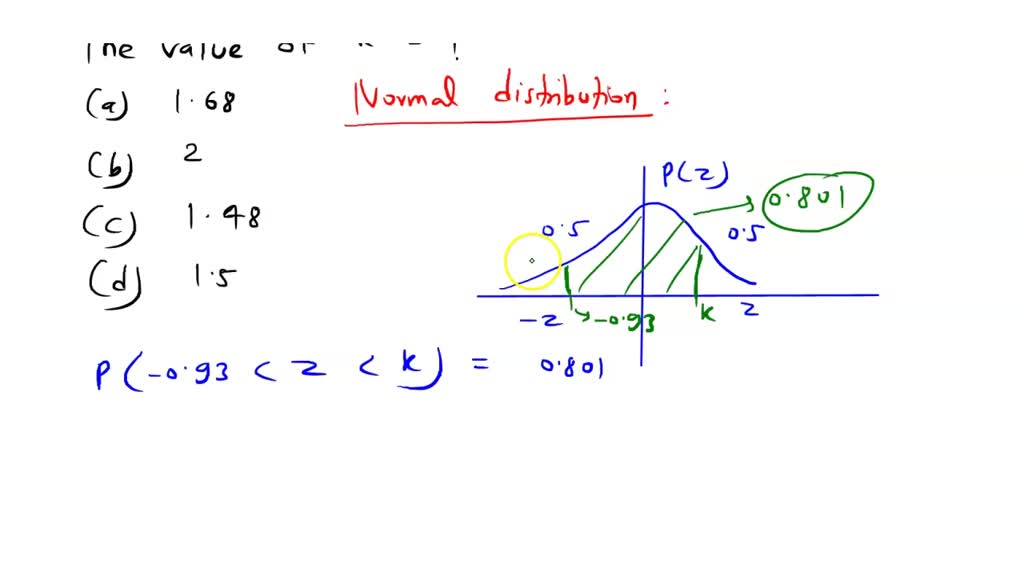 The value of K = ?
(a) 1.68
Normal distribution :
(b) 2
(c) 1.48
(d) 1.5
P(z)
0.801
0.5
0.5
-z
-0.93
k
z
P(-0.93 < z < k) = 0.801